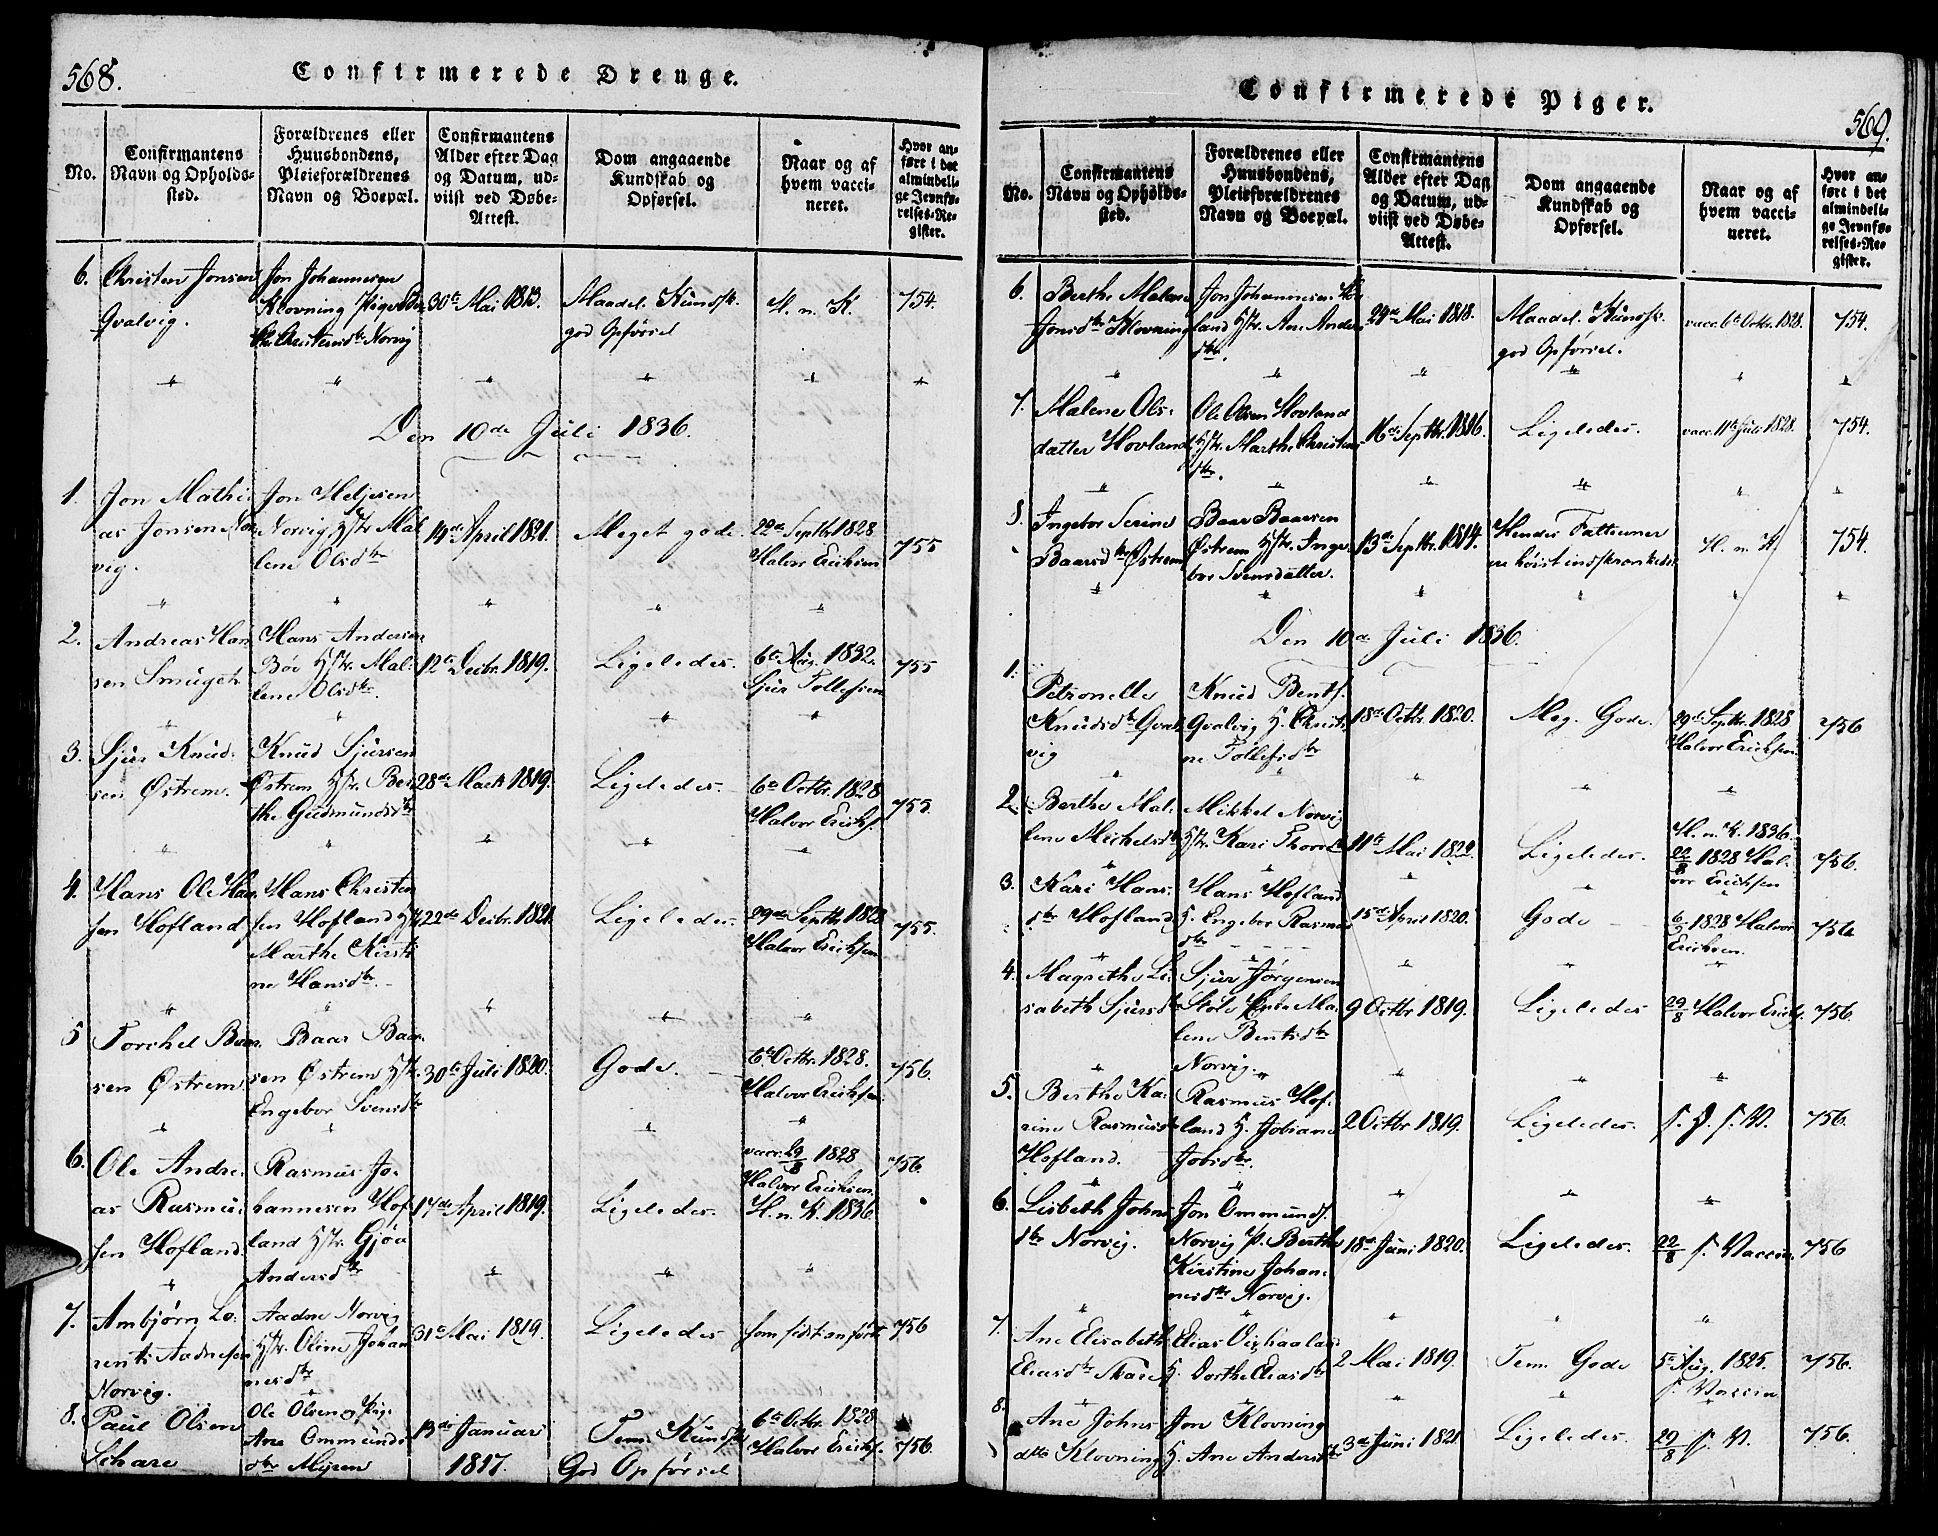 568.
Confirmerede Drenge.
No.
Confirmantens
Navn og Opholds-
sted.
Forældrenes eller
Huusbondens,
Pleieforældrenes
Navn og Boepæl.
Confirmantens
Alder efter Dag
og Datum, ud-
viist ved Døbe-
Attest.
Dom angaaende
Kundskab og
Opførsel.
Naar og af
hvem vacci-
neret.
Hvor an-
ført i det
almindeli-
ge Jevnfø-
relses-Re-
gister.
6. Christen Jonsen
Qvalvig.
Jon Johannesen
Klovning
Christensdtr Norvig
30te Mai 1813.
Maadel. Kundsk.
god Opførsel
H. n. K.
754.
Den 10de Juli 1836.
1. Jon Mathi-
as Jonsen Nor-
vig.
Jon Heljesen
Norvig Hstr. Mal-
lene Olsdtr
14de April 1821.
Meget gode.
22de Septbr 1828
Halvor Ericksen
755
2. Andreas Han-
sen Smuget
Hans Andersen
Bøv Hstr. Mal-
lene Olsdtr.
12te Decbr. 1819.
Ligeledes.
6te Aug. 1832.
Sjur Tollefsen
755
3. Sjur Knud-
sen Østrem.
Knud Sjursen
Østrem Hstr. Ber-
the Gudmundsdtr
28de Marts 1819.
Ligeledes
6te Octbr. 1828
Halvor Ericks.
755.
4. Hans Ole Han-
sen Hofland
Hans Christen-
sen Hofland H.
Marthe Kirsti-
ne Hansdtr.
22de Decbr. 1821.
Ligeledes.
29de Septbr 1828
Halvor Ericksen
755.
5 Torchel Baar-
sen Østrem
Baar Baar-
sen Østrem Hstr.
Engebor Svensdtr
30te Juli 1820.
Gode.
6te Octbr. 1828.
Halvor Ericksen
756.
6. Ole Andre-
as Rasmu-
sen Hofland.
Rasmus Jo-
hannesen Hof-
land Hstr. Gjøa
Andersdtr
17de April 1819.
Ligeledes.
vacc. 29/8 1828
Halvor Ericksen.
H. n. K. 1836
756.
7. Ambjørn Lo-
rents Aadnesen
Norvig.
Aadne Norvig
Hstr. Oline Johan-
nesdtr
31te Mai 1819.
Ligeledes
som sidst anført.
756
8. Paul Olsen
Schare
Ole Olsen og Pig.
Ane Ommunds-
dtr Myren
13de Januar
1817.
Tem. Kundsk.
God Opførsel
6te Octbr. 1828
Halvor Ericks.
756.
Confirmerede Piger.
569.
No.
Confirmantens
Navn og Opholds-
sted.
Forældrenes eller
Huusbondens,
Pleieforældrenes
Navn og Boepæl.
Confirmantens
Alder efter Dag
og Datum, ud-
viist ved Døbe-
Attest.
Dom angaaende
Kundskab og
Opførsel.
Naar og af
hvem vacci-
neret.
Hvor an-
ført i det
almindeli-
ge Jevnfø-
relses-Re-
gister.
6. Berthe Malene
Jonsdtr Klovning
Jon Johannesen
land Hstr. Ane Anders-
dtr.
29de Mai 1818.
Maadel. Kundsk.
god Opførsel.
vacc. 6te Octbr. 1828.
754.
7. Malene Ols-
datter Hovland
Ole Olsen Hovland
Hstr. Marthe Christens-
dtr.
16de Septbr. 1816.
Ligeledes.
vacc. 11te Juli 1828.
754.
8. Ingebor Serine
Baarsdtr Østrem
Baar Baarsen
Østrem Hstr. Inge-
bor Svensdatter.
13de Septbr. 1814.
Hendes Fatteevner
ere høist indskrænkede.
H. n. K.
754.
Den 10de Juli 1836.
1. Petronelle
Knudsdtr Qval-
vig
Knud Bents.
Qvalvig H. Christi-
ne Tollefsdtr
18de Octbr. 1820.
Meg. Gode.
29de Septbr. 1828
Halvor Ericksen
756
2. Berthe Mal-
lene Michelsdtr
Mikkel Norvig
Hstr. Kari
11te Mai 1822.
Ligeledes.
H. n. K. 1836.
22/8 1828 Hal-
vor Ericksen
756.
3. Kari Hans-
dtr Hofland
Hans Hofland
H. Engebor Rasmus-
dtr
15de April 1820.
Gode
6/9 1828 Halvor
Ericksen.
756
4. Magrethe Li-
sabeth Sjursdtr
Sjur Jørgensen
Stole Enke Ma-
lene Bentsdtr
Norvig.
9 Octbr 1819.
Ligeledes
29/8 Halvor Ericks.
756.
5. Berthe Ka-
rine Rasmusdtr
Hofland.
Rasmus Hof-
land H. Jobiane
Jobsdtr.
2 Octbr 1819.
Ligeledes.
s. f. s. V.
756.
6. Lisbeth Johns-
dtr Norvig.
Jon Ommunds.
Norvig P. Berthe
Kirstine Johan-
nesdtr Norvig.
18de Juni 1820.
Ligeledes.
22/8 s. Vaccin.
756
7. Ane Elisabeth
Eliasdtr Skare
Elias
H. Dorthe Eliasdtr
2 Mai 1819.
Tem. Gode
5te Aug. 1825.
s. Vaccin
756.
8. Ane Johns-
dtr Klovning
Jon Klovning
H. Ane Andersdtr
3de Juni 1821
Ligeledes.
29/8 s. V.
756.